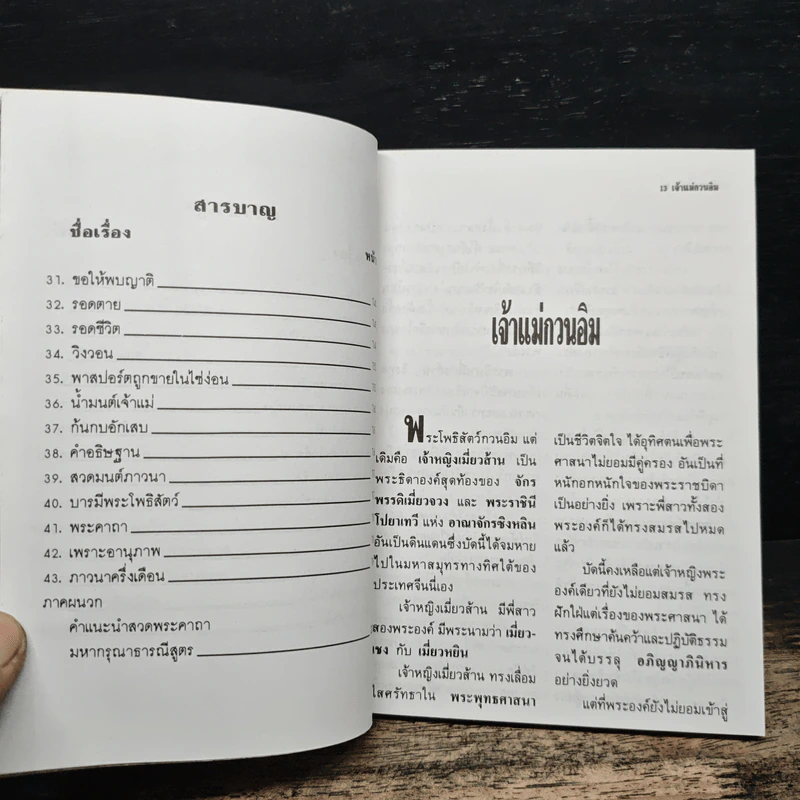 สารบาญ
ชื่อเรื่อง
หน้า
31. ขอให้พบญาติ
32. รอดตาย
33. รอดชีวิต
34. วิงวอน
35. พาสปอร์ตถูกขายในไซ่ง่อน
36. น้ำมนต์เจ้าแม่
37. ก้นกบอักเสบ
38. คำอธิษฐาน
39. สวดมนต์ภาวนา
40. บารมีพระโพธิสัตว์
41. พระคาถา
42. เพราะอานุภาพ
43. ภาวนาครึ่งเดือน
ภาคผนวก
คำแนะนำสวดพระคาถา
มหากรุณาธารณีสูตร
13 เจ้าแม่กวนอิม
เจ้าแม่กวนอิม
พระโพธิสัตว์กวนอิม แต่
เดิมคือ เจ้าหญิงเมี่ยวส้าน เป็น
พระธิดาองค์สุดท้องของ จักร
พรรดิเมี่ยวจวง และ พระราชินี
โปยาเทวี แห่ง อาณาจักรซิงหลิน
อันเป็นดินแดนซึ่งบัดนี้ได้จมหาย
ไปในมหาสมุทรทางทิศใต้ของ
ประเทศจีนนี่เอง
เจ้าหญิงเมี่ยวส้าน มีพี่สาว
สองพระองค์ มีพระนามว่า เมี่ยว-
เชง กับ เมี่ยวหยิน
เจ้าหญิงเมี่ยวส้าน ทรงเลื่อม
ใสศรัทธาใน พระพุทธศาสนา
เป็นชีวิตจิตใจ ได้อุทิศตนเพื่อพระ
ศาสนาไม่ยอมมีคู่ครอง อันเป็นที่
หนักอกหนักใจของพระราชบิดา
เป็นอย่างยิ่ง เพราะพี่สาวทั้งสอง
พระองค์ก็ได้ทรงสมรสไปหมด
แล้ว
บัดนี้คงเหลือแต่เจ้าหญิงพระ
องค์เดียวที่ยังไม่ยอมสมรส ทรง
ฝักใฝ่แต่เรื่องของพระศาสนา ได้
ทรงศึกษาค้นคว้าและปฏิบัติธรรม
จนได้บรรลุ อภิญญาภินิหาร
อย่างยิ่งยวด
แต่ที่พระองค์ยังไม่ยอมเข้าสู่